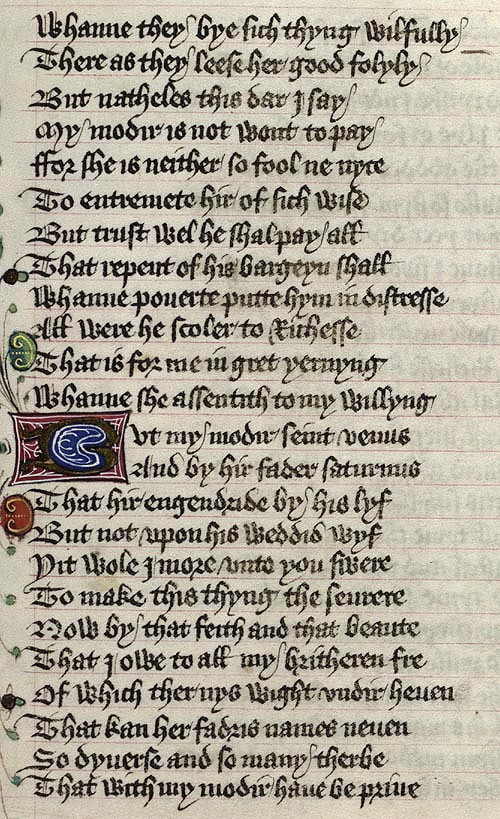 Whanne they bye sich thyng wilfully
There as they leese her good folyly
But natheles this dar I say
My modir is not wont to pay
ffor she is neither so fool ne nyce
To entremete hir of sich wise
But trust wel he shal pay all
That repent of his bargeyn shall
Whanne pouerte putte hym in distresse
All were he scoler to Richesse
That is for me in gret yernyng
Whanne she assentith to my willyng
But my modir seint venus
And by hir fader saturnus
That hir engendride by his lyf
But not vpon his weddid wyf
Yit wole I more vnto you swere
To make this thyng the seurere
Now by that feith and that beaute
That I owe to all my britheren fre
Of which ther nys wight vndir heuen
That kan her fadris names neuen
So dyuerse and so many therbe
That with my modir haue be priue